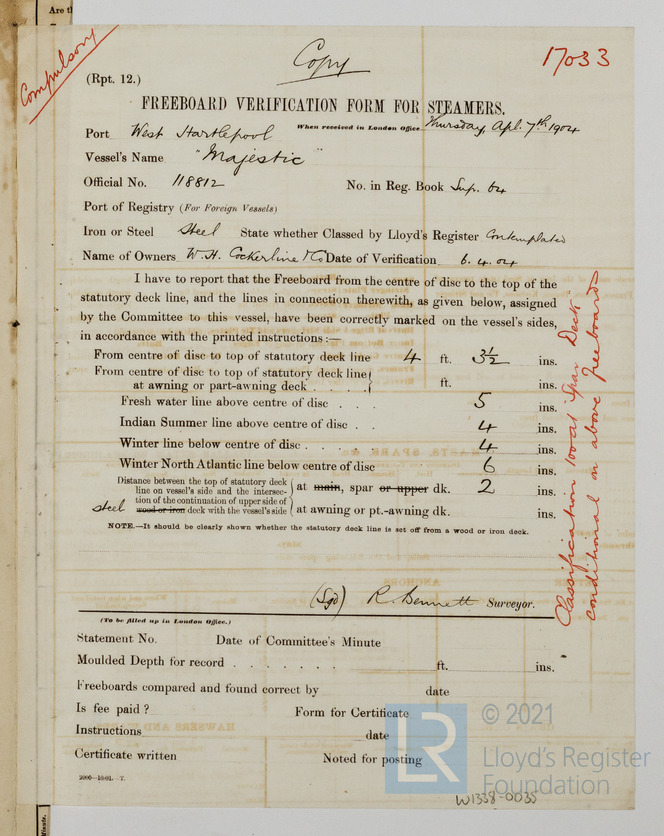 Are th
Compulsory
Copy
17033
(Rpt. 12.)
FREEBOARD VERIFICATION FORM FOR STEAMERS.
Port West Hartlepool When received in London Office Thursday, Apl. 7th 1904
Vessel's Name "Majestic"
Official No. 118812 No. in Reg. Book Sup. 64
Port of Registry (For Foreign Vessels)
Iron or Steel Steel State whether Classed by Lloyd's Register Contemplated
Name of Owners W. H. Cockerline & Co Date of Verification 6.4.04
I have to report that the Freeboard from the centre of disc to the top of the
statutory deck line, and the lines in connection therewith, as given below, assigned
by the Committee to this vessel, have been correctly marked on the vessel's sides,
in accordance with the printed instructions :—
From centre of disc to top of statutory deck line 4 ft. 3½ ins.
From centre of disc to top of statutory deck line
at awning or part-awning deck . . . . ft. ins.
Fresh water line above centre of disc . . . 5 ins.
Indian Summer line above centre of disc . . 4 ins.
Winter line below centre of disc . . . . . 4 ins.
Winter North Atlantic line below centre of disc 6 ins.
Distance between the top of statutory deck
line on vessel's side and the intersec-
tion of the continuation of upper side of
steel wood or iron deck with the vessel's side
at main, spar or upper dk. 2 ins.
at awning or pt.-awning dk. ins.
NOTE.—It should be clearly shown whether the statutory deck line is set off from a wood or iron deck.
(Sgd) R. Bennett Surveyor.
Classification 100A1 "Spar Deck"
conditional on above freeboard
(To be filled up in London Office.)
Statement No. Date of Committee's Minute
Moulded Depth for record . . . . . . . ft. ins.
Freeboards compared and found correct by date
Is fee paid ? Form for Certificate
Instructions date
Certificate written Noted for posting
2000—10.01. T.
LR
© 2021
Lloyd's Register
Foundation
W1338-0035
Minute.